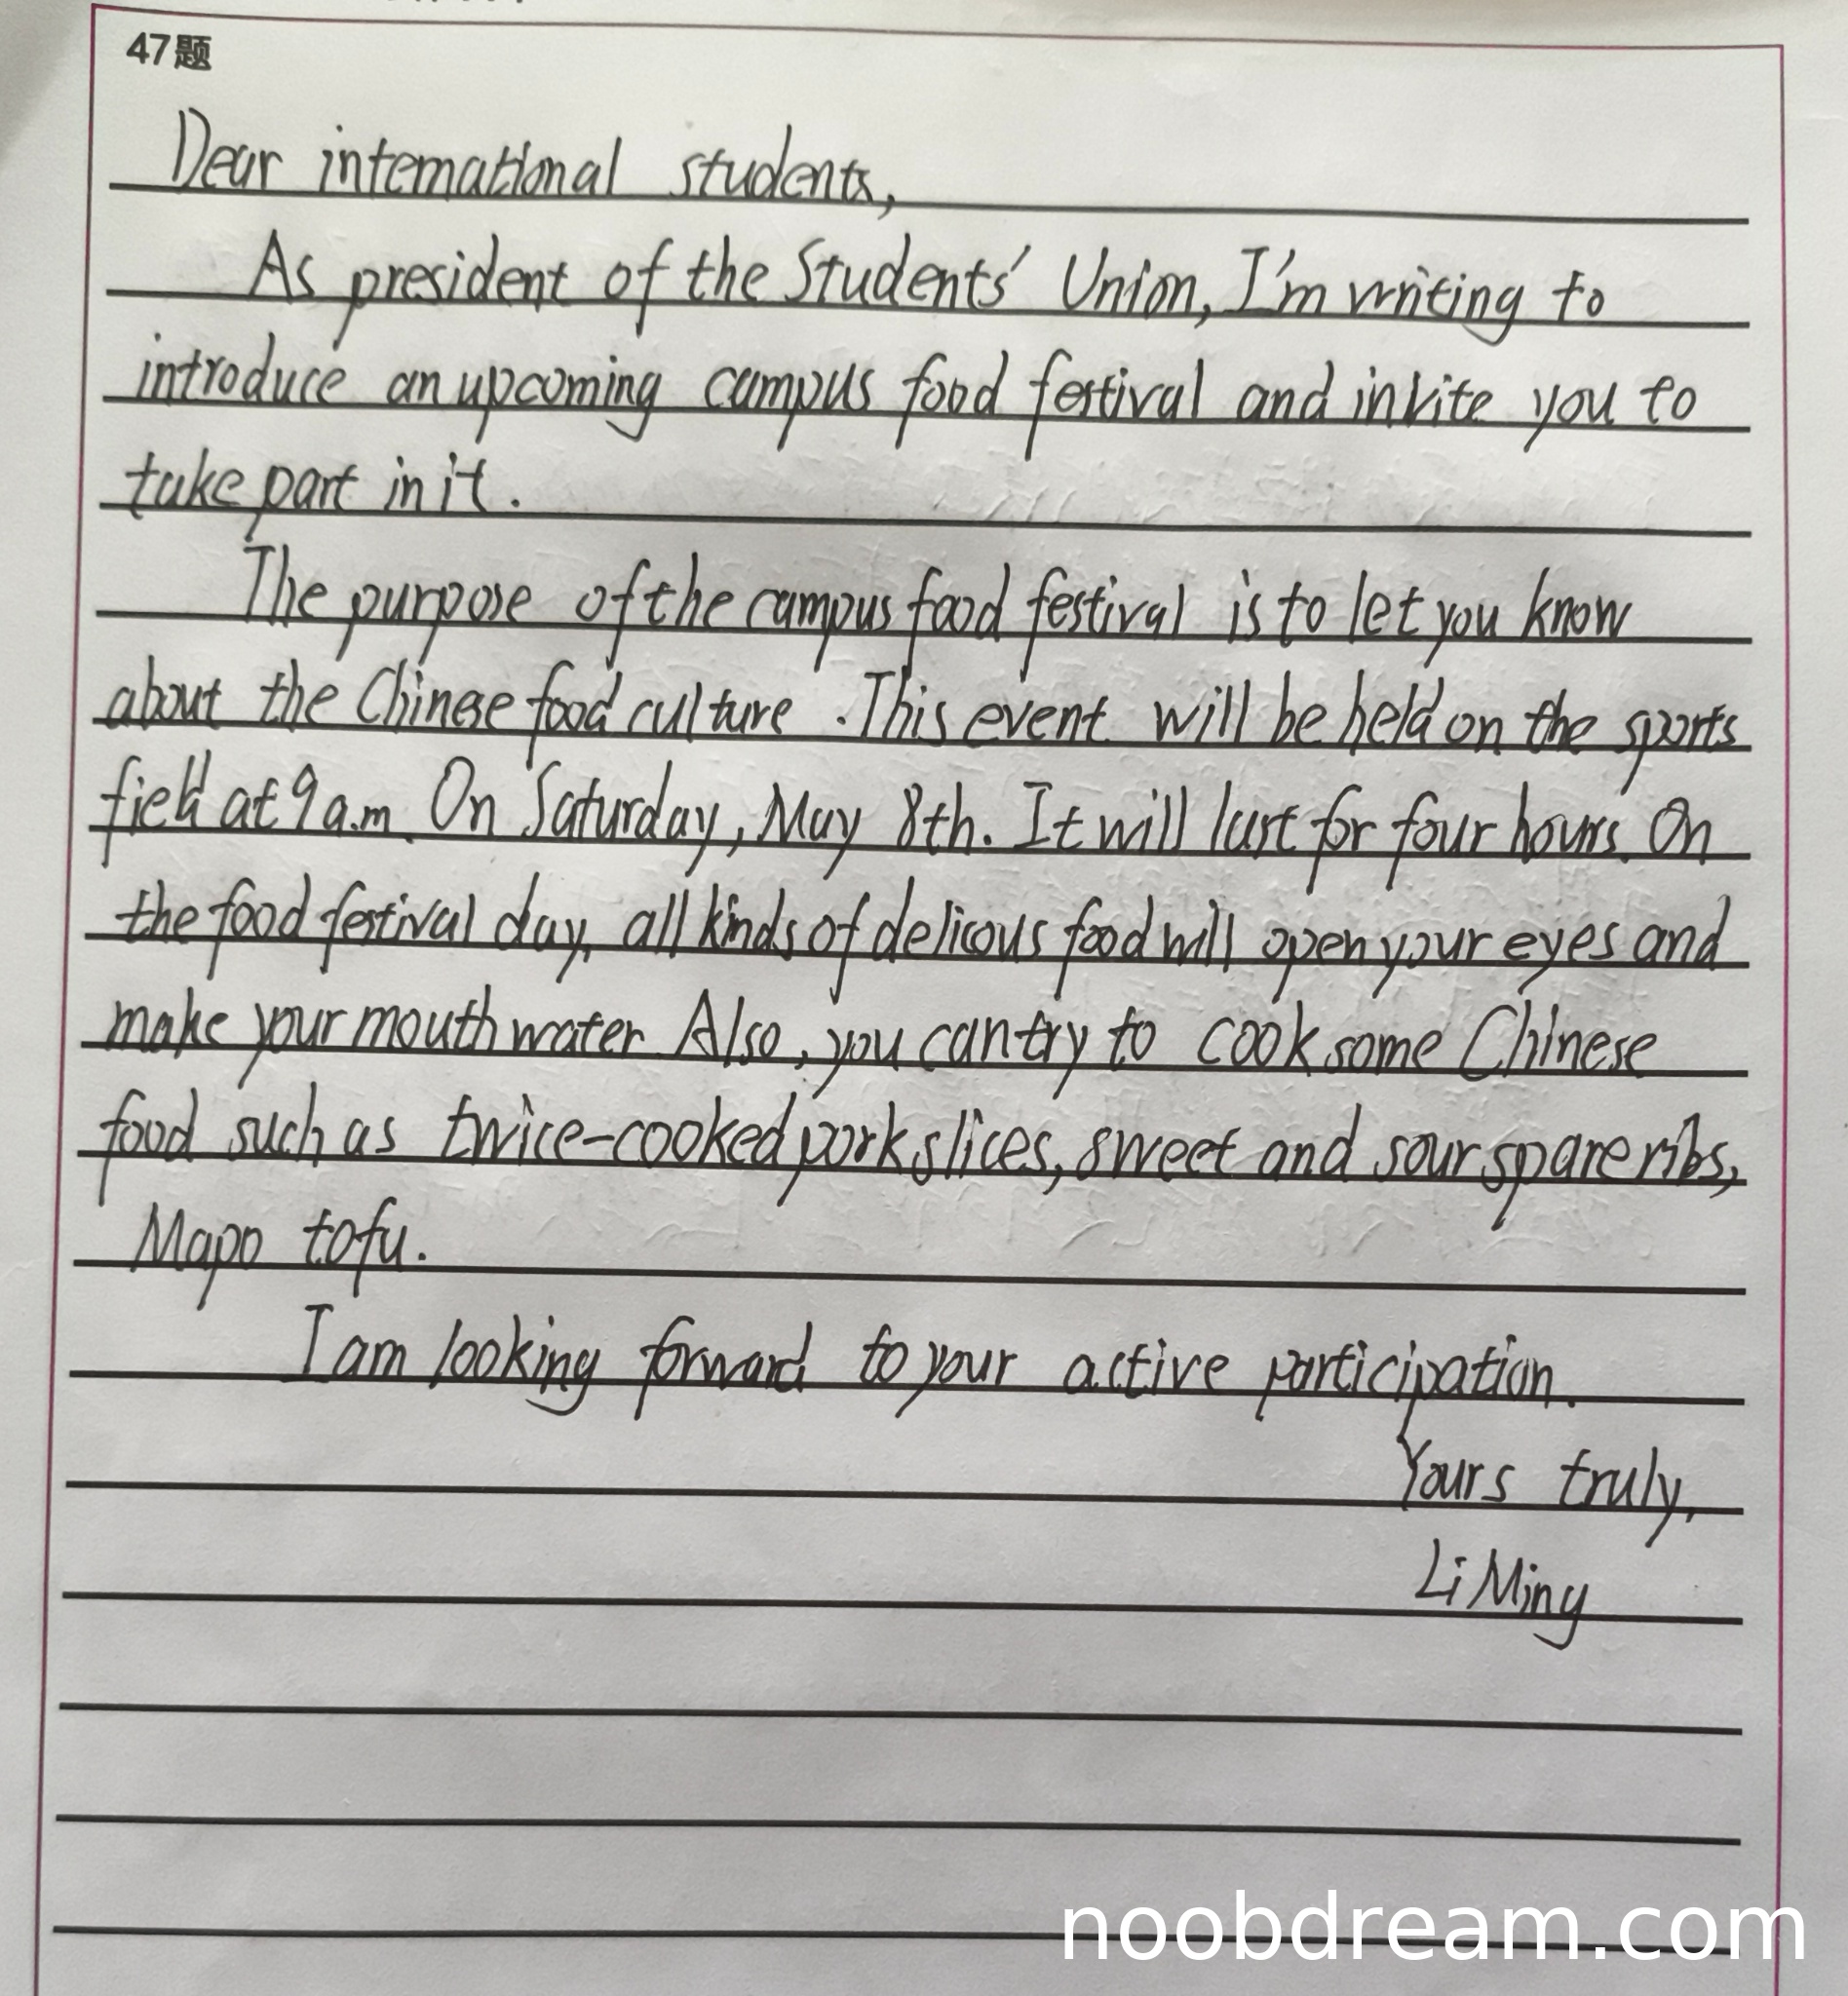 47题
Dear international students,
As president of the Students' Union, I'm writing to
introduce an upcoming campus food festival and invite you to
take part in it.
The purpose of the campus food festival is to let you know
about the Chinese food culture. This event will be held on the sports
field at 9 a.m. On Saturday, May 8th. It will last for four hours. On
the food festival day, all kinds of delicous food will open your eyes and
make your mouth water. Also, you can try to cook some Chinese
food such as twice-cooked pork slices, sweet and sour spare ribs,
Mapo tofu.
I am looking forward to your active participation.
Yours truly,
Li Ming
noobdream.com